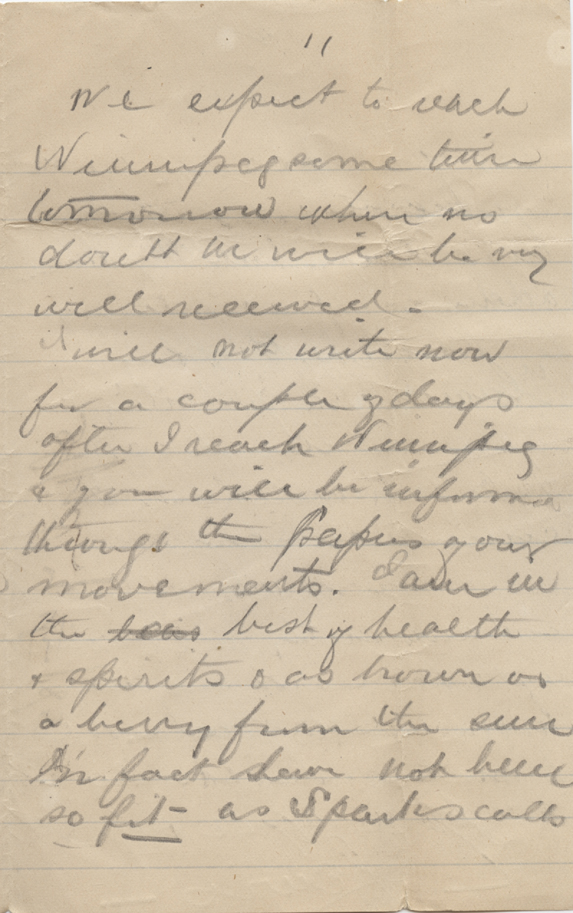 11
We expect to reach
Winnipeg some time
tomorrow when no
doubt we will be very
well received -
I will not write now
for a couple of days
after I reach Winnipeg
& you will be informed
through the papers of our
movements. I am in
the best of health
& spirits & as brown as
a berry from the sun
In fact have not been
so fit - as Sparks calls